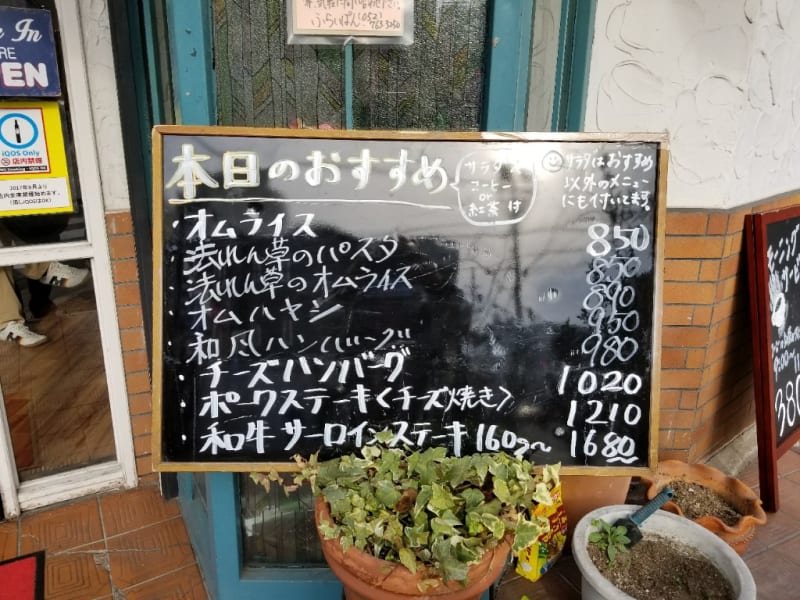 In
EN
iQOS Only
店内禁煙
ふらいぱん(052)
763 3250
本日のおすすめ
サラダ
コーヒー
or
紅茶 付
サラダはおすすめ
以外のメニュー
にも付いてます。
・オムライス 850
・法れん草のパスタ 850
・法れん草のオムライス 890
・オムハヤシ 950
・和風ハンバーグ 980
・チーズハンバーグ 1020
・ポークステーキ〈チーズ焼き〉 1210
・和牛サーロインステーキ160g〜 1680
モーニング
サービス
380